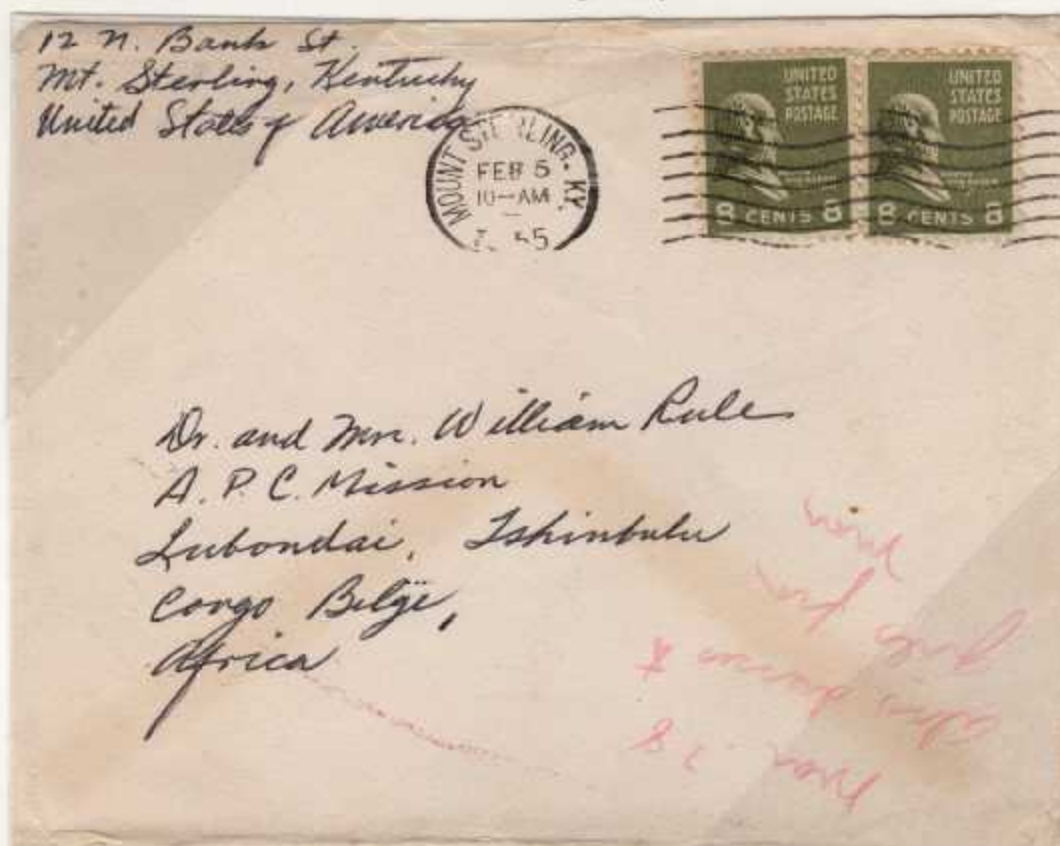 12 N. Bank St.
Mt. Sterling, Kentucky
United States of America
MOUNT STERLING. KY.
FEB 5
10-AM
55
UNITED
STATES
POSTAGE
8 CENTS 8
UNITED
STATES
POSTAGE
8 CENTS 8
Dr. and Mrs. William Rule
A. P. C. Mission
Lubondai, Tshinbulu
Congo Belge,
Africa